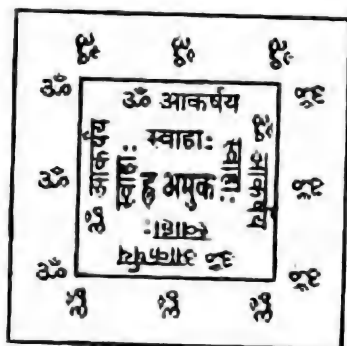 ॐ ॐ ॐ
ॐ ॐ
ॐ ॐ
ॐ ॐ
ॐ ॐ ॐ
ॐ आकर्षय
स्वाहा:
ॐ आकर्षय
स्वाहा:
ॐ आकर्षय
स्वाहा:
ॐ आकर्षय
स्वाहा:
ह्र अमुक